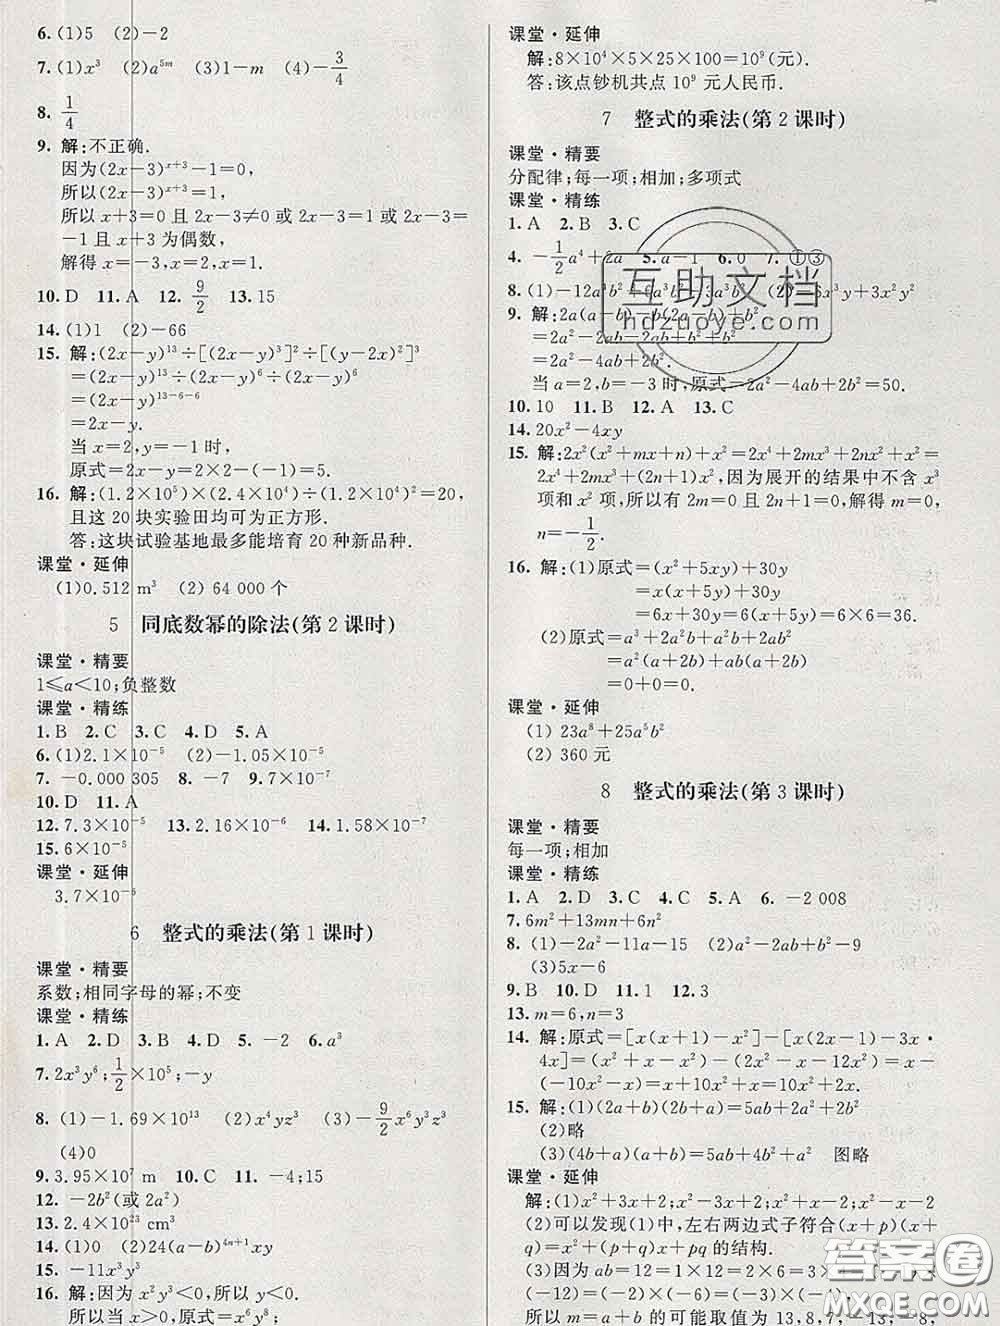 6. (1)5 (2)-2
7. (1)x³ (2)a⁵ᵐ (3)1-m (4)-3/4
8. 1/4
9. 解:不正确.
因为(2x-3)ˣ⁺³-1=0,
所以(2x-3)ˣ⁺³=1,
所以 x+3=0 且 2x-3≠0 或 2x-3=1 或 2x-3=
-1 且 x+3 为偶数,
解得 x=-3,x=2,x=1.
10. D 11. A 12. 9/2 13. 15
14. (1)1 (2)-66
15. 解:(2x-y)¹³÷[(2x-y)³]²÷[(y-2x)²]³
=(2x-y)¹³÷(2x-y)⁶÷(2x-y)⁶
=(2x-y)¹³⁻⁶⁻⁶
=2x-y.
当 x=2,y=-1 时,
原式=2×2-(-1)=5.
16. 解:(1.2×10⁵)×(2.4×10⁴)÷(1.2×10⁴)²=20,
且这 20 块实验田均可为正方形.
答:这块试验基地最多能培育 20 种新品种.
课堂·延伸
(1)0.512 m³ (2) 64 000 个
5 同底数幂的除法(第 2 课时)
课堂·精要
1≤a<10;负整数
课堂·精练
1. B 2. C 3. C 4. D 5. A
6. (1)2.1×10⁻⁵ (2)-1.05×10⁻⁵
7. -0.000 305 8. -7 9. 7×10⁻⁷
10. D 11. A
12. 7.3×10⁻⁵ 13. 2.16×10⁻⁶ 14. 1.58×10⁻⁷
15. 6×10⁻⁵
课堂·延伸
3.7×10⁻⁶
6 整式的乘法(第 1 课时)
课堂·精要
系数;相同字母的幂;不变
课堂·精练
1. A 2. D 3. B 4. D 5. -2 6. a³
7. 2x³y⁶;1/2×10⁵;-y
8. (1)-1.69×10¹³ (2)x⁴yz³ (3)-9/2x⁶y³z³
(4)0
9. 3.95×10⁷ m 10. C 11. -4;15
12. -2b²(或 2a²)
13. 2.4×10²³ cm³
14. (1)0 (2)24(a-b)⁴ⁿ⁺¹xy
15. -11x³y³
16. 解:因为 x²y³<0,所以 y<0.
所以当 x>0,原式=
课堂·延伸
解:8×10⁴×5×25×100=10⁹(元).
答:该点钞机共点 10⁹ 元人民币.
7 整式的乘法(第 2 课时)
课堂·精要
分配律;每一项;相加;多项式
课堂·精练
1. A 2. B 3. C
4. -1/2a⁴+2a 5. a-1 6. 0 7. ①③
8. (1)-12a³b²+6a³b³ (2)-6x³y+3x²y²
9. 解:2a(a-b)-b(2a-b)+b²
=2a²-2ab-2ab+b²+b²
=2a²-4ab+2b².
当 a=2,b=-3 时,原式=2a²-4ab+2b²=50.
10. 10 11. B 12. A 13. C
14. 20x²-4xy
15. 解:2x²(x²+mx+n)+x²=2x⁴+2mx³+2nx²+x²=
2x⁴+2mx³+(2n+1)x²,因为展开的结果中不含 x³
项和 x² 项,所以有 2m=0 且 2n+1=0,解得 m=0,
n=-1/2.
16. 解:(1)原式=(x²+5xy)+30y
=x(x+5y)+30y
=6x+30y=6(x+5y)=6×6=36.
(2)原式=a³+2a²b+2a²b+2ab²
=a²(a+2b)+ab(a+2b)
=0+0=0.
课堂·延伸
(1) 23a⁸+25a⁵b²
(2) 360 元
8 整式的乘法(第 3 课时)
课堂·精要
每一项;相加
课堂·精练
1. A 2. D 3. C 4. C 5. A 6. -2 008
7. 6m²+13mn+6n²
8. (1)-2a²-11a-15 (2)a²-2ab+b²-9
(3)5x-6
9. B 10. D 11. 1 12. 3
13. m=6,n=3
14. 解:原式=[x(x+1)-x²]-[x(2x-1)-3x·
4x]=(x²+x-x²)-(2x²-x-12x²)=x-
(-10x²-x)=x+10x²+x=10x²+2x.
15. 解:(1)(2a+b)(a+2b)=2a²+5ab+2b²
(2)略
(3)(4b+a)(b+a)=5ab+4b²+a² 图略
课堂·延伸
解:(1)x²+3x+2;x²-3x+2;x²+x-2;x²-x-2
(2)可以发现(1)中,左右两边式子符合(x+p)(x+q)
=x²+(p+q)x+pq 的结构.
(3)因为 ab=12=1×12=2×6=3×4=(-1)×
(-12)=(-2)×(-6)=(-3)×(-4),
所以 m=a+b 的可能取值为 13,8,7,-13,-8,
互助文档
hdzuoye.com
答案圈
MXQE.COM